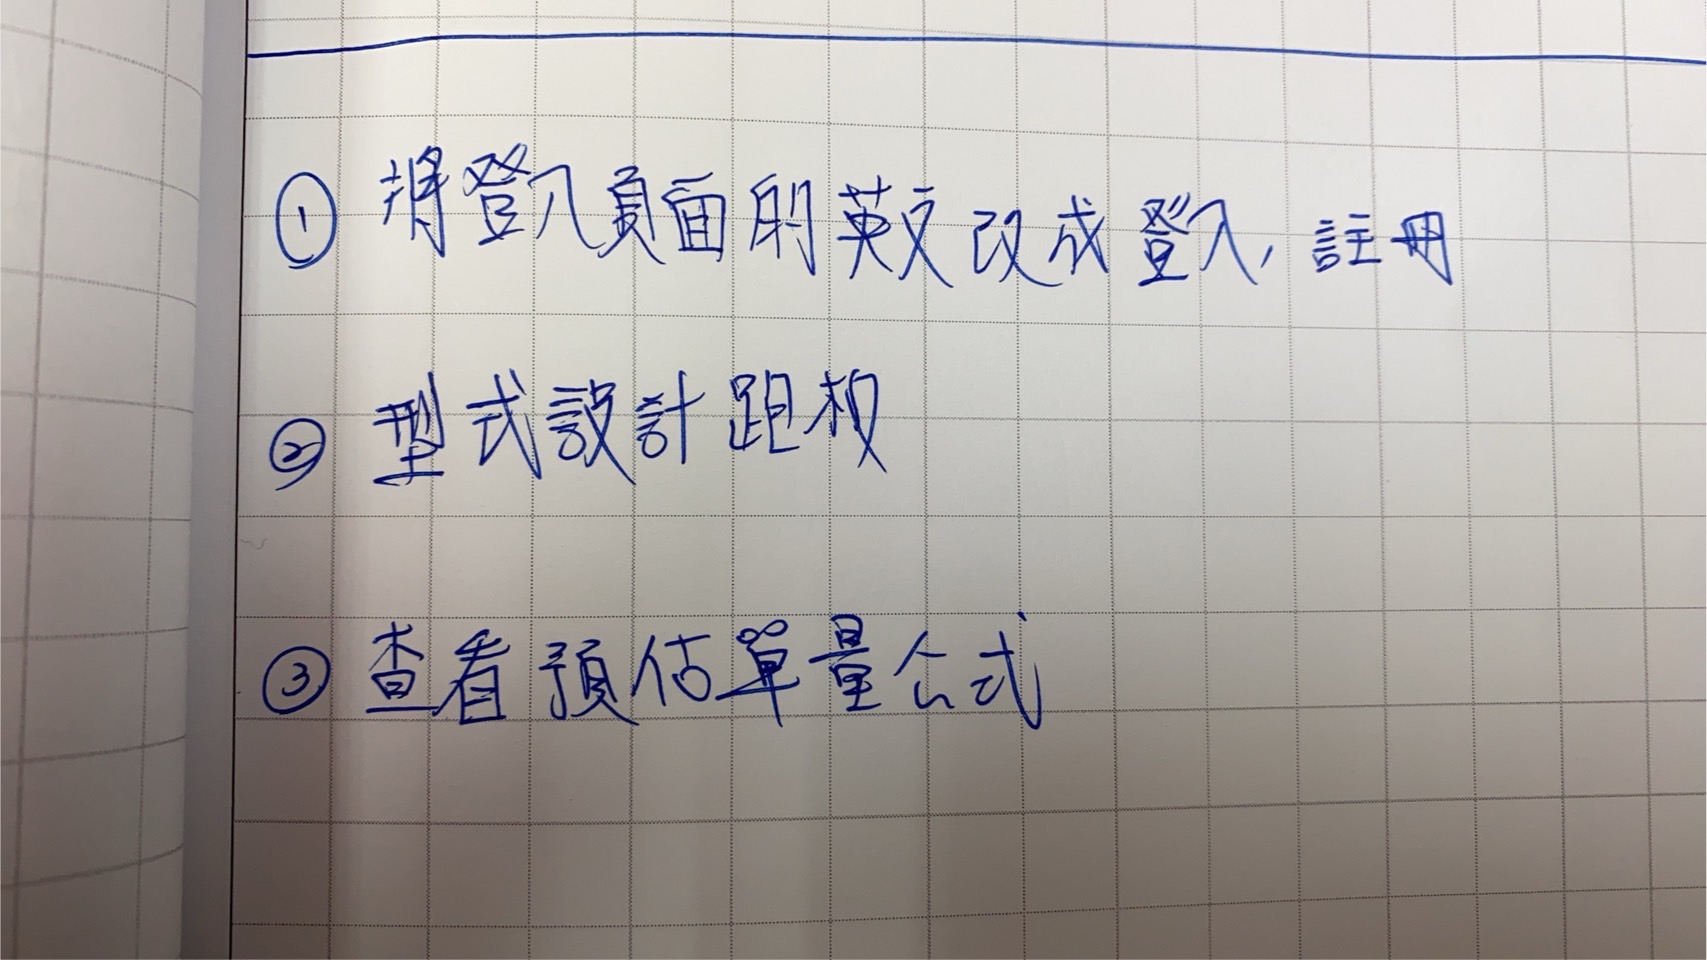 ① 將登入頁面的英文改成登入, 註冊
② 型式設計跑板
③ 查看預估單量公式